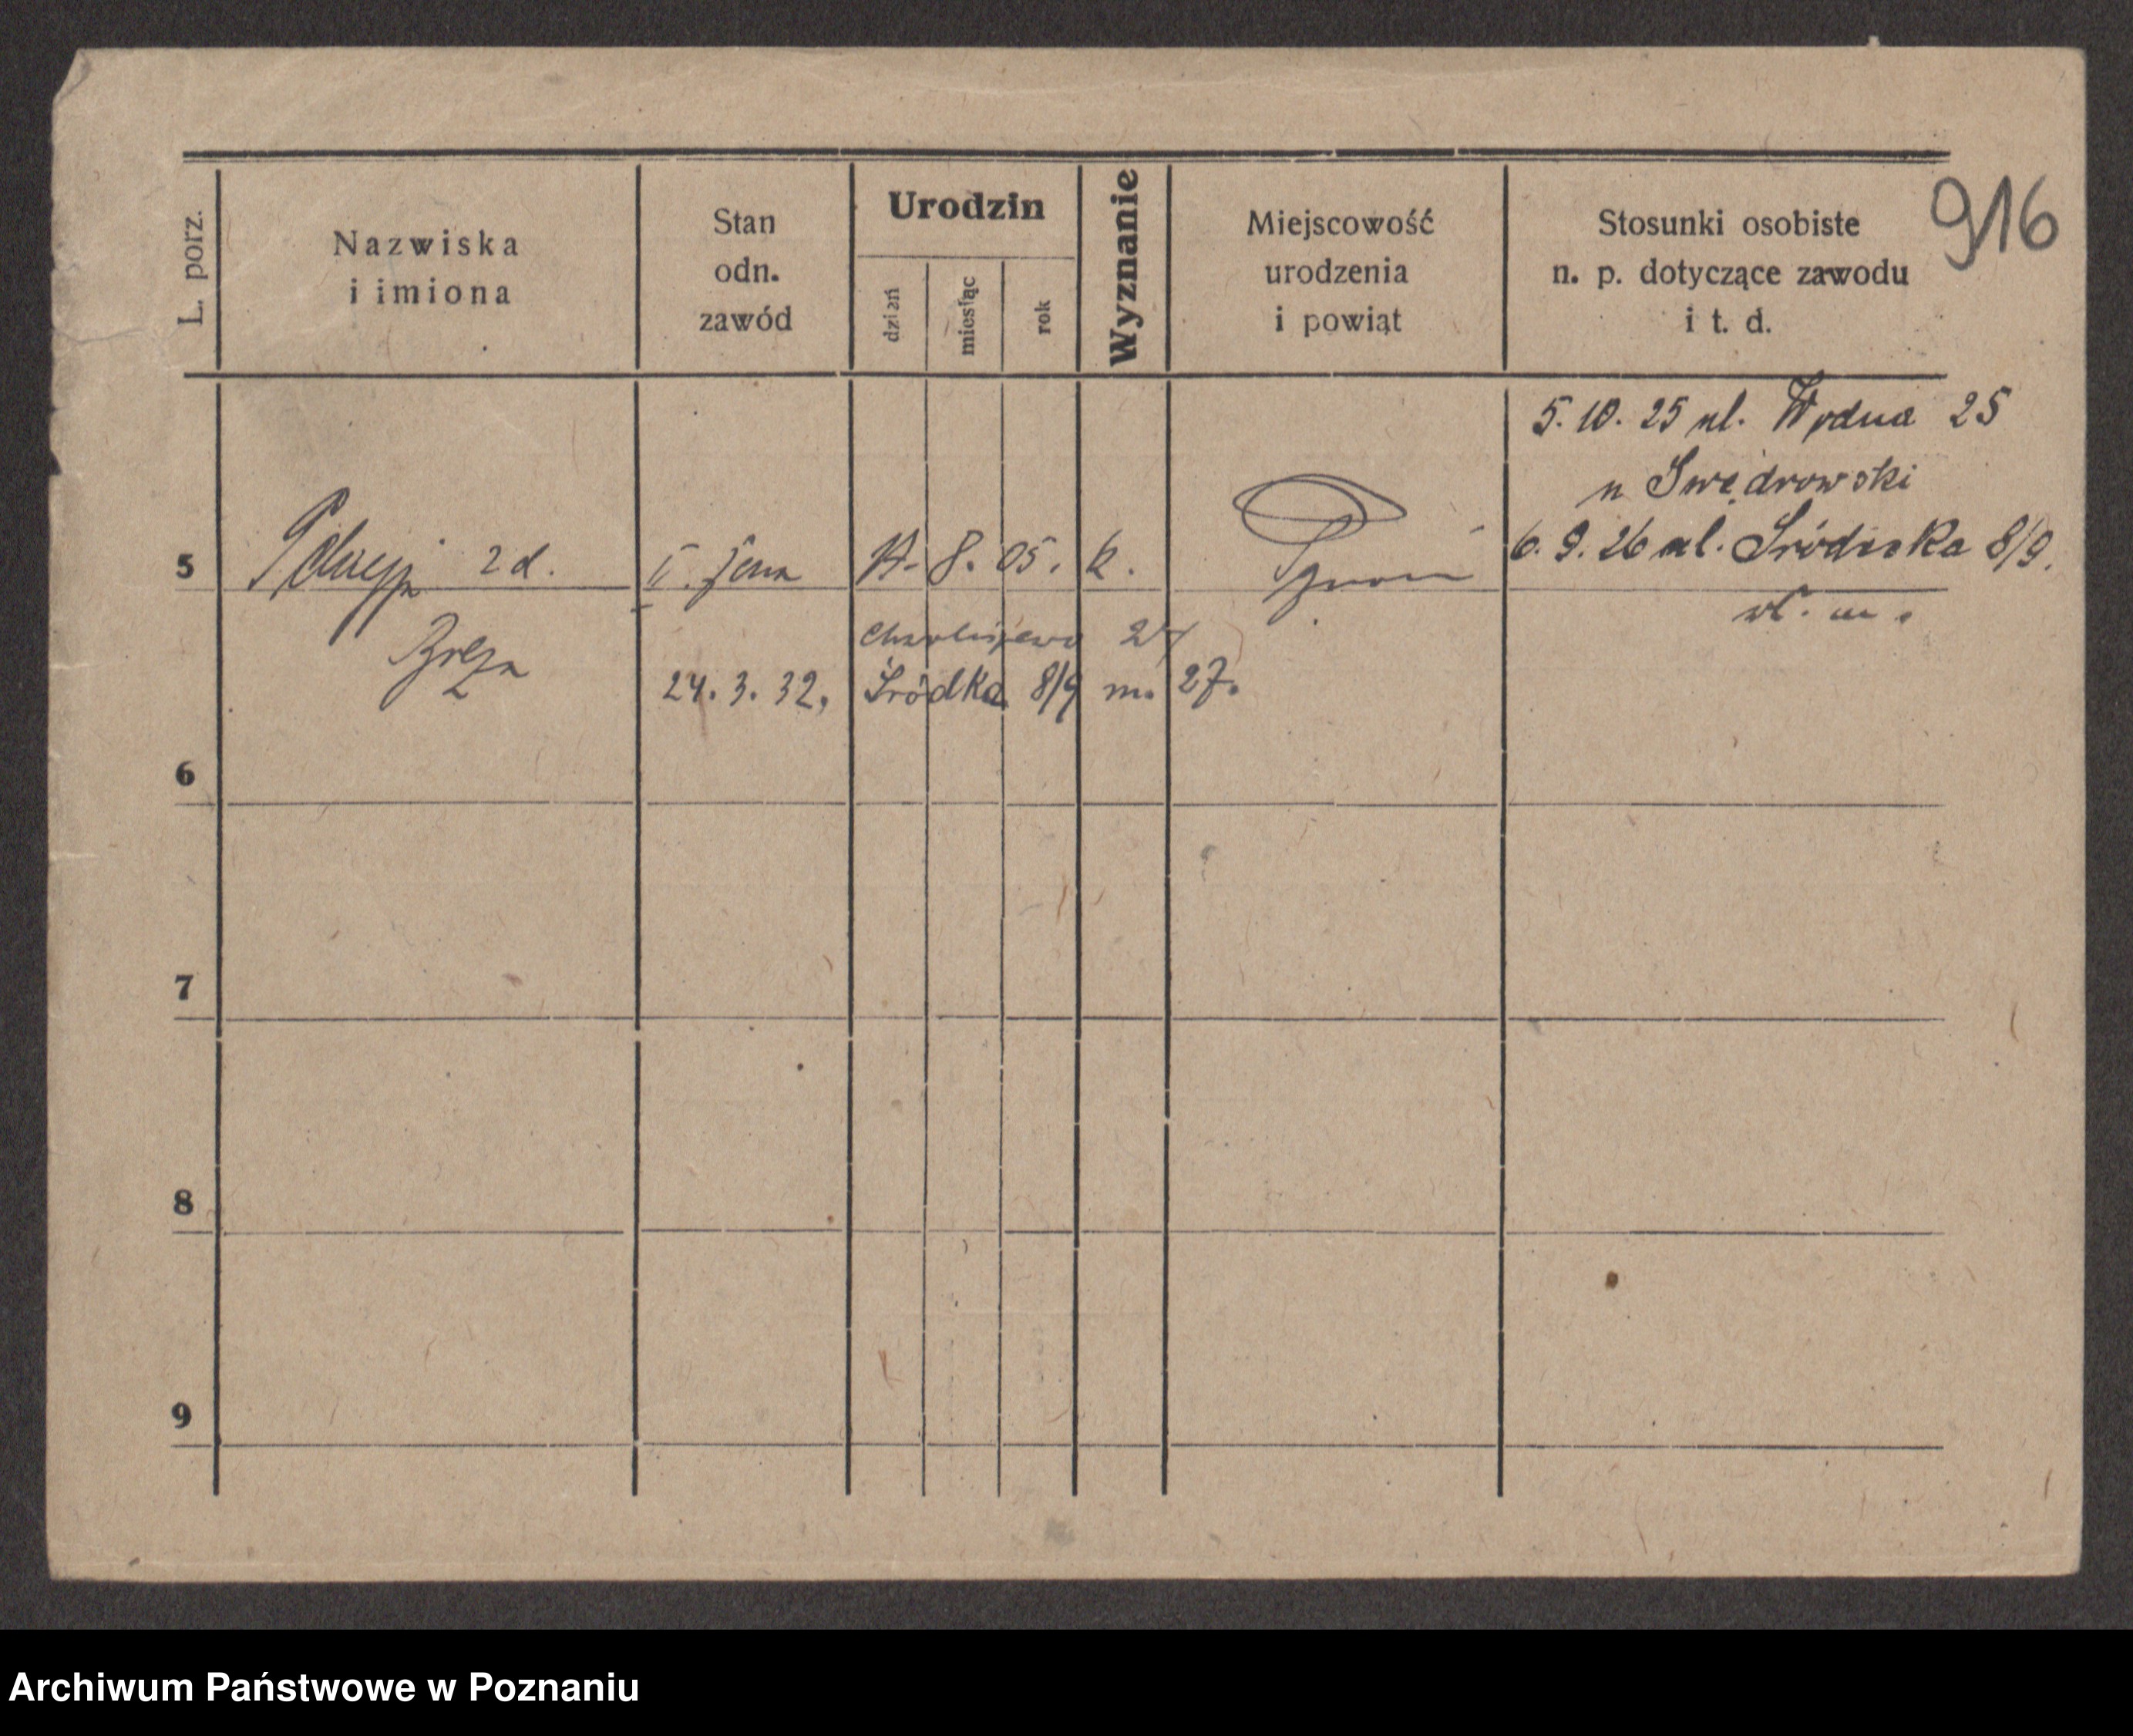 916
L. porz.
Nazwiska
i imiona
Stan
odn.
zawód
Urodzin
dzień
miesiąc
rok
Wyznanie
Miejscowość
urodzenia
i powiąt
Stosunki osobiste
n. p. dotyczące zawodu
i t. d.
5. 10. 25 ul. Wodna 25
u Swędrowski
6. 9. 26 ul. Śródecka 8/9.
wł. m.
5
2 d.
II. żona
8. 05. k.
24. 3. 32. Śródka 8/9 m. 27.
6
7
8
9
Archiwum Państwowe w Poznaniu